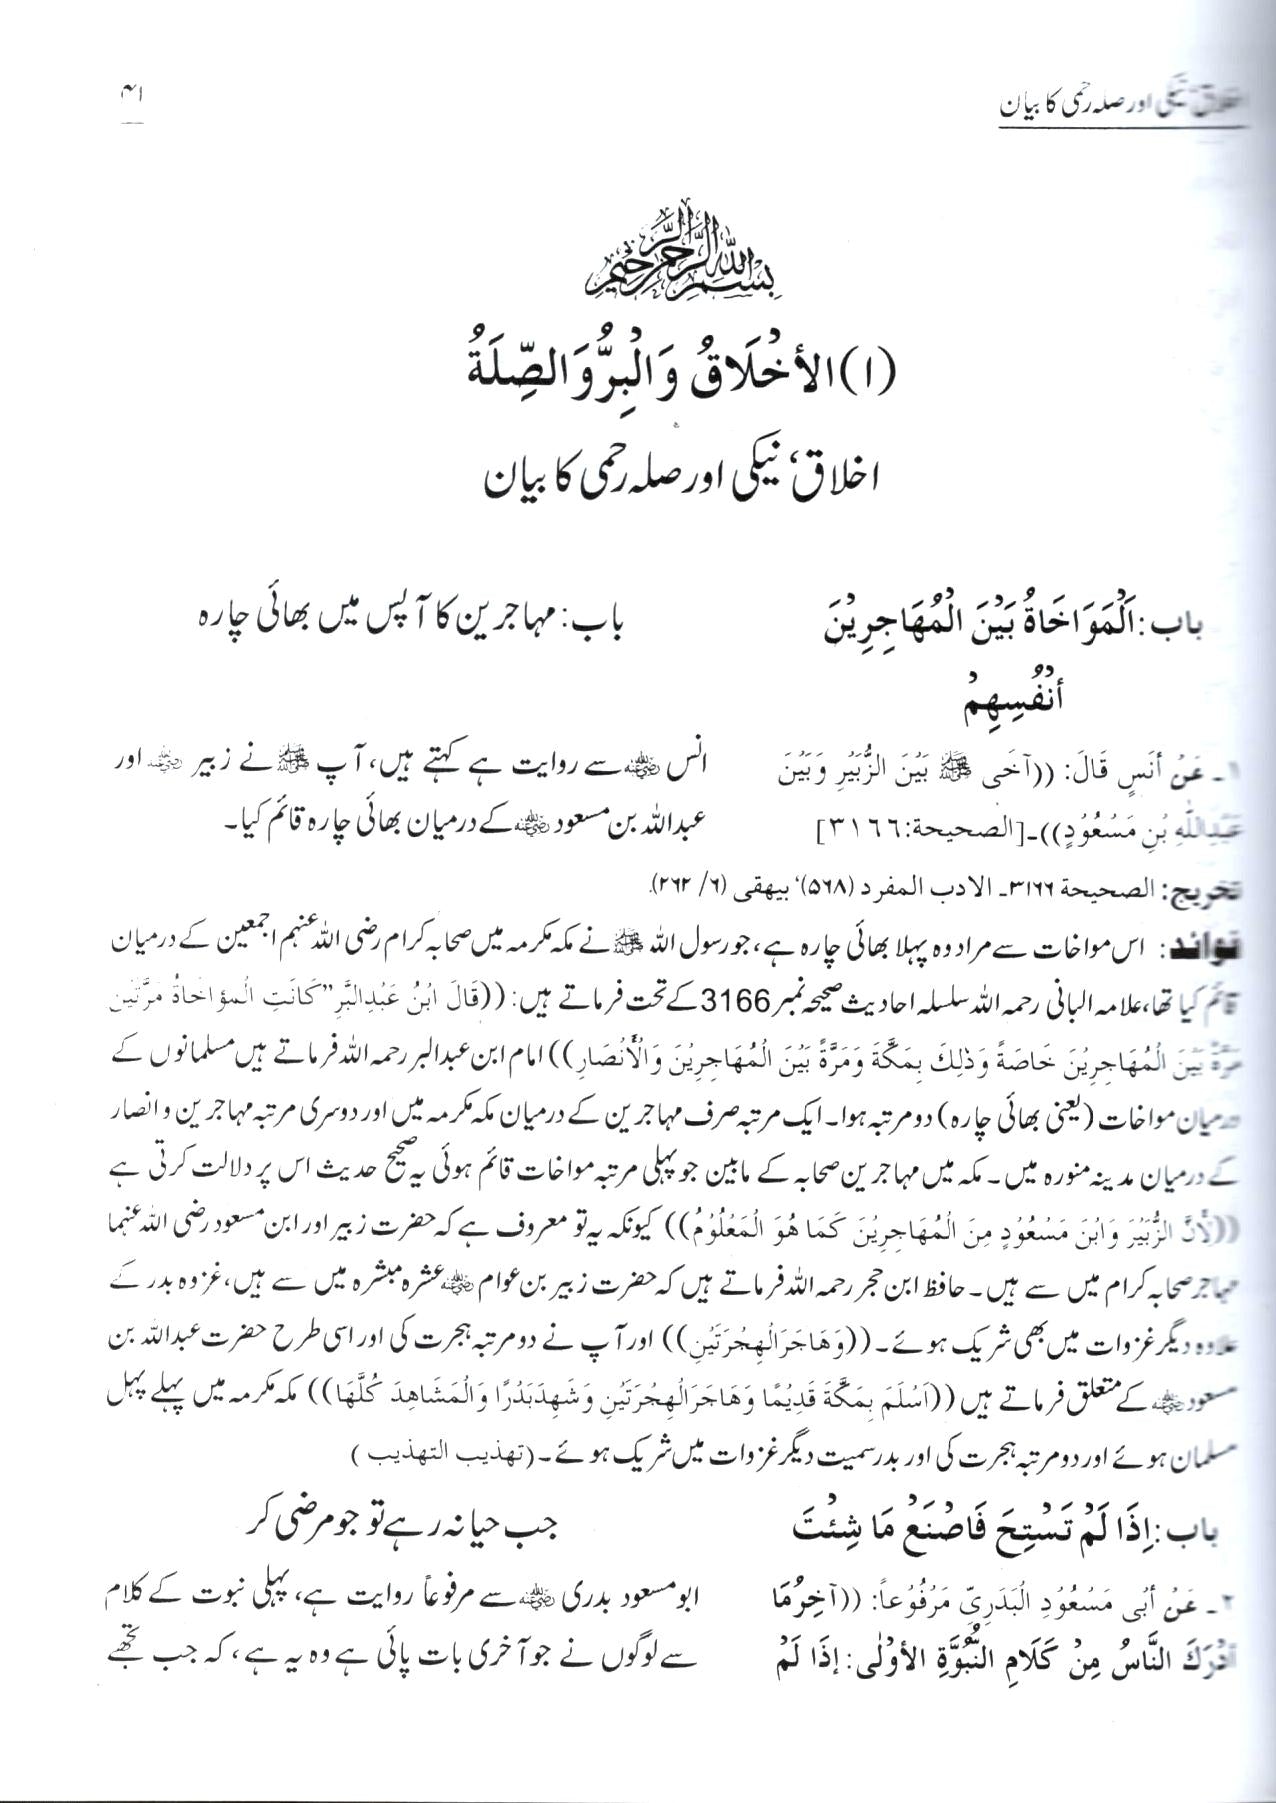 اخلاق، نیکی اور صلہ رحمی کا بیان
۴۱
بسم الله الرحمن الرحيم
(۱) الأَخْلَاقُ وَالْبِرُّ وَالصِّلَةُ
اخلاق، نیکی اور صلہ رحمی کا بیان
باب: اَلْمَوَاخَاةُ بَيْنَ الْمُهَاجِرِيْنَ أنْفُسِهِمْ
باب: مہاجرین کا آپس میں بھائی چارہ
۱۔ عَنْ أنَسٍ قَالَ: ((آخَى ﷺ بَيْنَ الزُّبَيْرِ وَبَيْنَ
عَبْدِاللّٰهِ بْنِ مَسْعُوْدٍ))۔[الصحيحة:۳۱۶۶]
انس رضی اللہ عنہ سے روایت ہے کہتے ہیں، آپ ﷺ نے زبیر رضی اللہ عنہ اور
عبداللہ بن مسعود رضی اللہ عنہ کے درمیان بھائی چارہ قائم کیا۔
تخریج: الصحیحة ۳۱۶۶۔ الادب المفرد (۵۶۸)، بیهقی (۶/ ۲۶۲).
فوائد: اس مواخات سے مراد وہ پہلا بھائی چارہ ہے، جو رسول اللہ ﷺ نے مکہ مکرمہ میں صحابہ کرام رضی اللہ عنہم اجمعین کے درمیان
قائم کیا تھا، علامہ البانی رحمہ اللہ سلسلہ احادیث صحیحہ نمبر 3166 کے تحت فرماتے ہیں: ((قَالَ ابْنُ عَبْدِالبَّرِ "كَانَتِ الْمؤاخَاةُ مَرَّتَيْنِ
مَرَّةً بَيْنَ الْمُهَاجِرِيْنَ خَاصَةً وَذٰلِكَ بِمَكَّةَ وَمَرَّةً بَيْنَ الْمُهَاجِرِيْنَ وَالْأَنْصَارِ)) امام ابن عبدالبر رحمہ اللہ فرماتے ہیں مسلمانوں کے
درمیان مواخات (یعنی بھائی چارہ) دو مرتبہ ہوا۔ ایک مرتبہ صرف مہاجرین کے درمیان مکہ مکرمہ میں اور دوسری مرتبہ مہاجرین و انصار
کے درمیان مدینہ منورہ میں۔ مکہ میں مہاجرین صحابہ کے مابین جو پہلی مرتبہ مواخات قائم ہوئی یہ صحیح حدیث اس پر دلالت کرتی ہے
((لأَنَّ الزُّبَيْرَ وَابْنَ مَسْعُوْدٍ مِنَ الْمُهَاجِرِيْنَ كَمَا هُوَ الْمَعْلُوْمُ)) کیونکہ یہ تو معروف ہے کہ حضرت زبیر اور ابن مسعود رضی اللہ عنہما
مہاجر صحابہ کرام میں سے ہیں۔ حافظ ابن حجر رحمہ اللہ فرماتے ہیں کہ حضرت زبیر بن عوام رضی اللہ عنہ عشرہ مبشرہ میں سے ہیں، غزوہ بدر کے
علاوہ دیگر غزوات میں بھی شریک ہوئے۔ ((وَهَاجَرَ الْهِجْرَتَيْنِ)) اور آپ نے دو مرتبہ ہجرت کی اور اسی طرح حضرت عبداللہ بن
مسعود رضی اللہ عنہ کے متعلق فرماتے ہیں ((اَسْلَمَ بِمَكَّةَ قَدِيْمًا وَهَاجَرَ الْهِجْرَتَيْنِ وَشَهِدَ بَدْرًا وَالْمَشَاهِدَ كُلَّهَا)) مکہ مکرمہ میں پہلے پہل
مسلمان ہوئے اور دو مرتبہ ہجرت کی اور بدر سمیت دیگر غزوات میں شریک ہوئے۔ (تهذيب التهذيب)
باب: إِذَا لَمْ تَسْتِحَ فَاصْنَعْ مَا شِئْتَ
جب حیا نہ رہے تو جو مرضی کر
۲۔ عَنْ أبِى مَسْعُوْدِ الْبَدَرِيِّ مَرْفُوْعاً: ((آخِرُ مَا
أدْرَكَ النَّاسُ مِنْ كَلَامِ النُّبُوَّةِ الأوْلٰى: إذَا لَمْ
ابو مسعود بدری رضی اللہ عنہ سے مرفوعاً روایت ہے، پہلی نبوت کے کلام
سے لوگوں نے جو آخری بات پائی ہے وہ یہ ہے، کہ جب تجھے